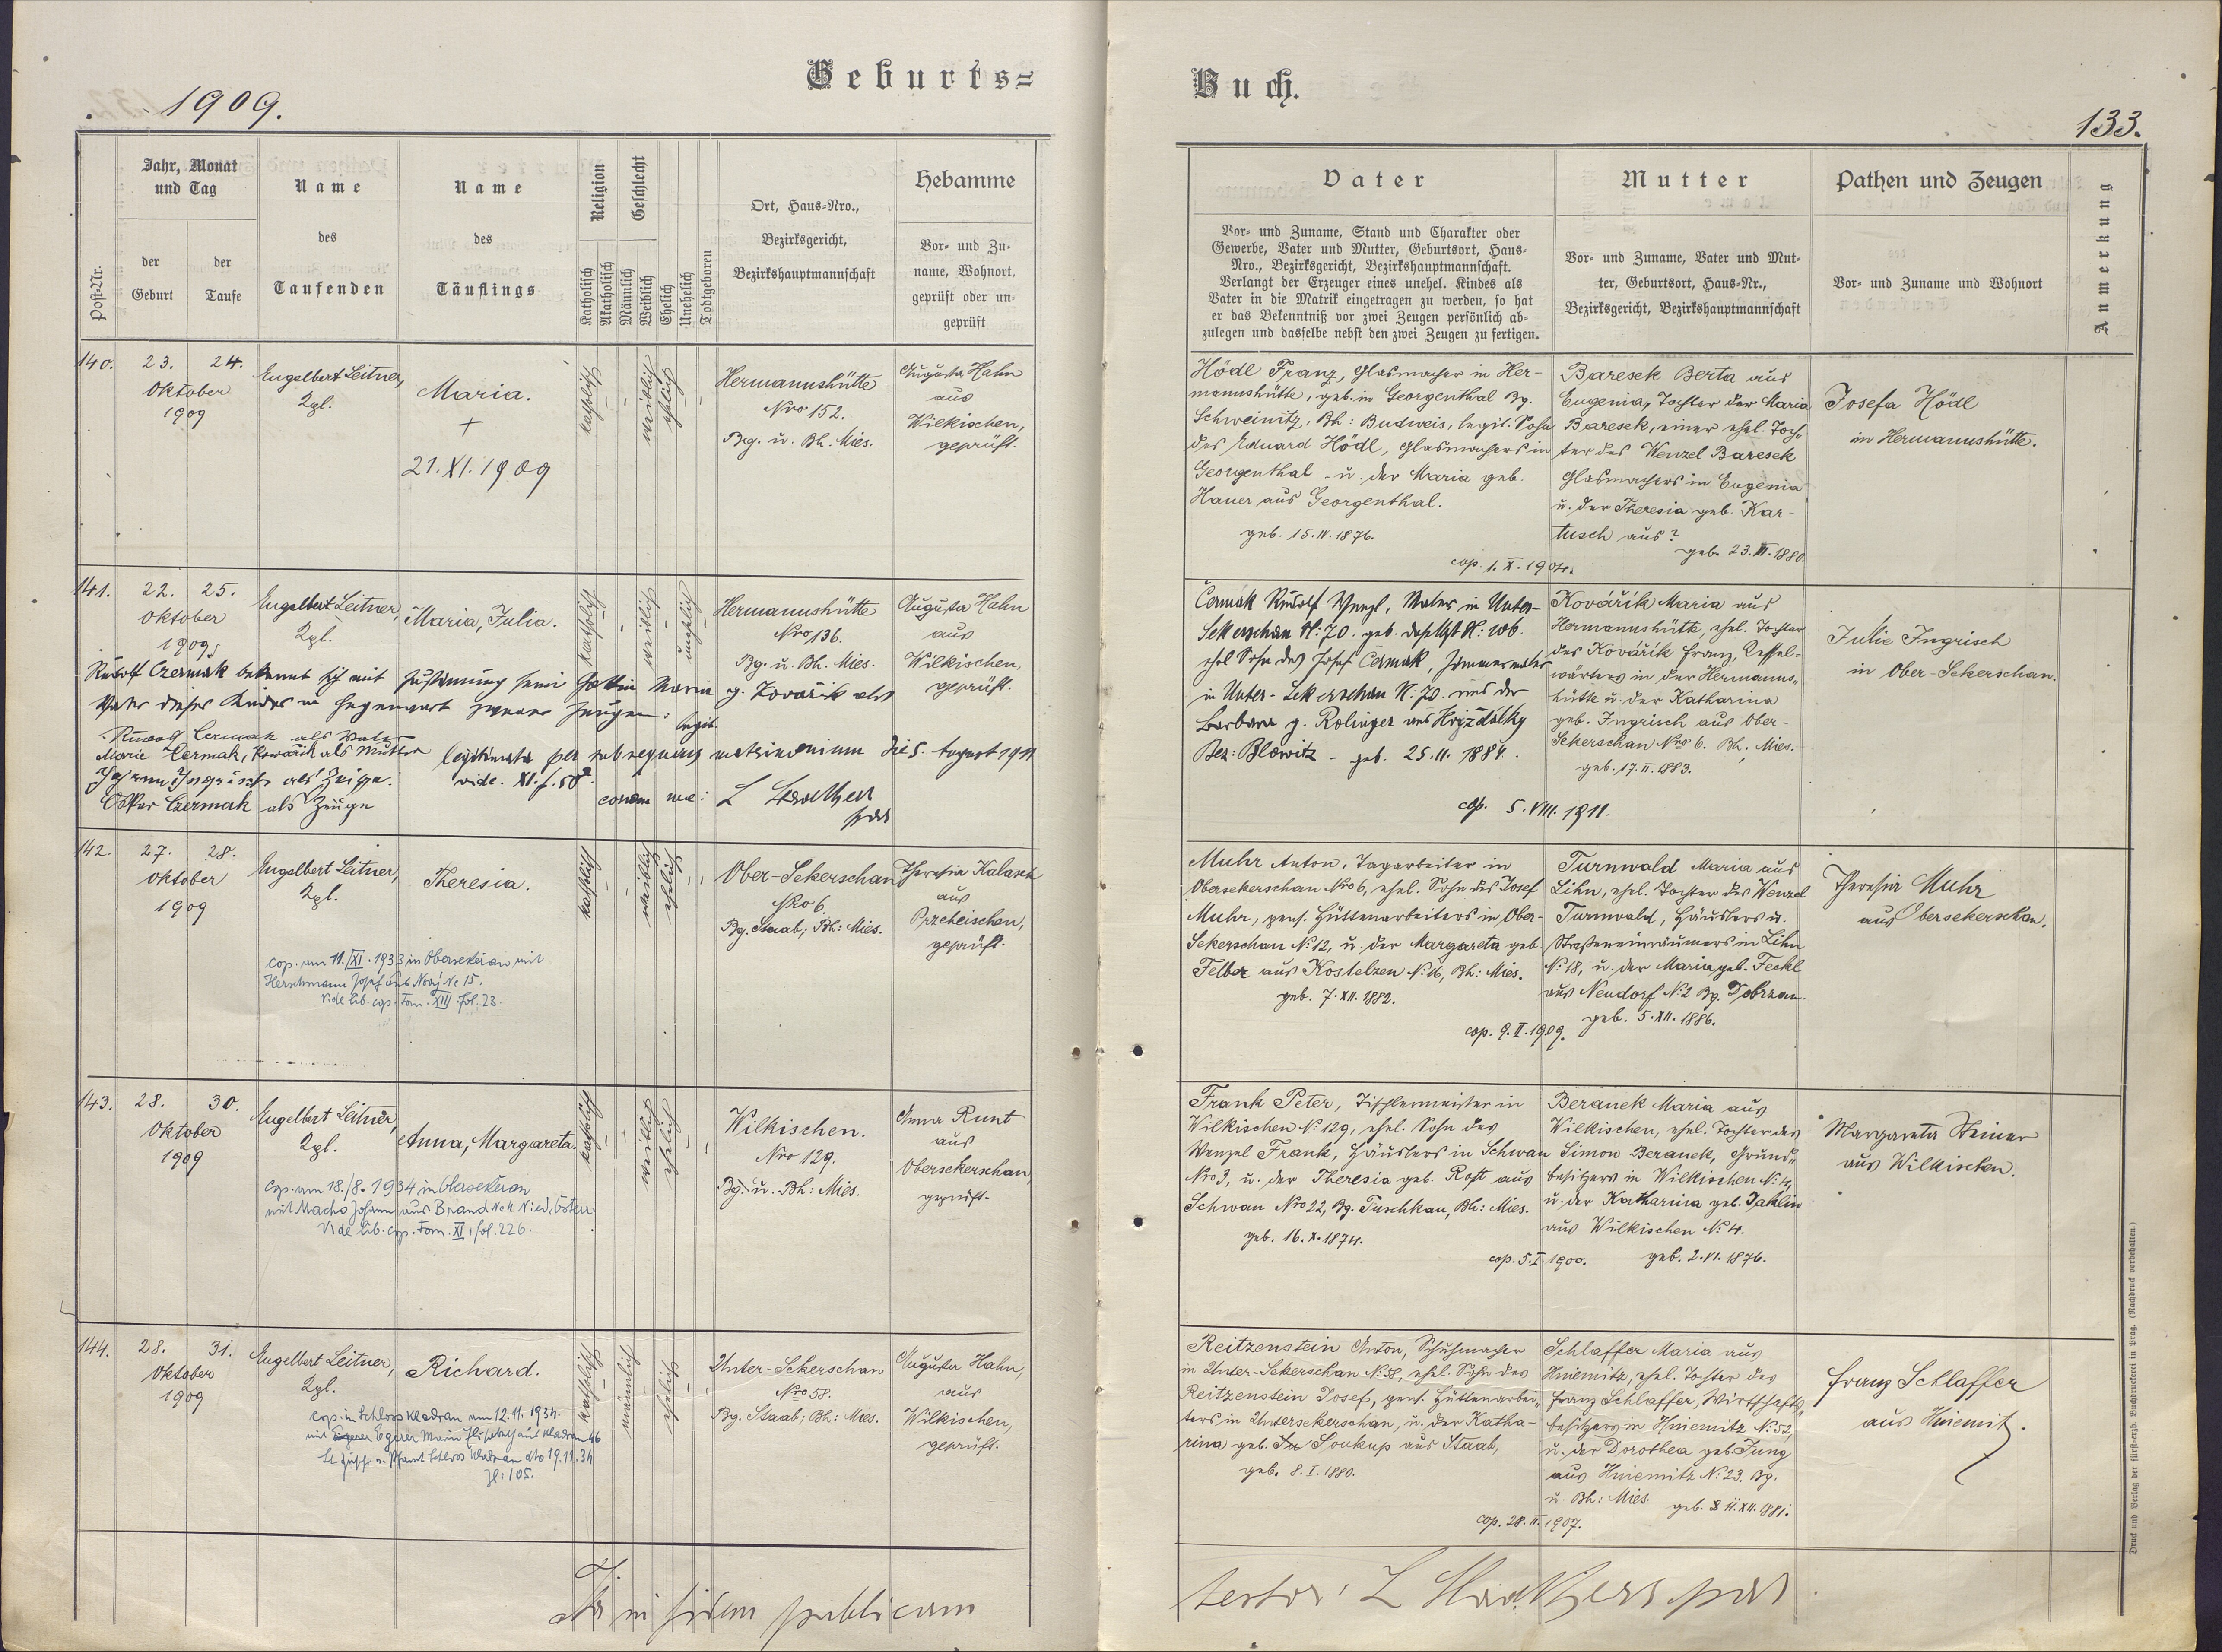 Geburts=
Buch.
1909.
133.
Post-Nr.
Jahr, Monat
und Tag
der
Geburt
der
Taufe
Name
des
Taufenden
Name
des
Täuflings
Religion
Katholisch
Akatholisch
Geschlecht
Männlich
Weiblich
Ehelich
Unehelich
Todtgeboren
Ort, Haus=Nro.,
Bezirksgericht,
Bezirkshauptmannschaft
Hebamme
Vor= und Zu-
name, Wohnort,
geprüft oder un-
geprüft
Vater
Vor= und Zuname, Stand und Charakter oder
Gewerbe, Vater und Mutter, Geburtsort, Haus-
Nro., Bezirksgericht, Bezirkshauptmannschaft.
Verlangt der Erzeuger eines unehel. Kindes als
Vater in die Matrik eingetragen zu werden, so hat
er das Bekenntniß vor zwei Zeugen persönlich ab-
zulegen und dasselbe nebst den zwei Zeugen zu fertigen.
Mutter
Vor= und Zuname, Vater und Mut-
ter, Geburtsort, Haus=Nr.,
Bezirksgericht, Bezirkshauptmannschaft
Pathen und Zeugen
Vor= und Zuname und Wohnort
Anmerkung
140.
23. 24.
Oktober
1909
Engelbert Leitner,
Kpl.
Maria.
+
21. XI. 1909
katholisch
weiblich
ehelich
Hermannshütte
Nro 152.
Bg. u. Bh. Mies.
Augusta Hahn
aus
Wilkischen,
geprüft.
Hödl Franz, Glasmacher in Her-
mannshütte, geb. in Georgenthal Bg.
Schweinitz, Bh: Budweis, legit. Sohn
des Eduard Hödl, Glasmachers in
Georgenthal u. der Maria geb.
Hauer aus Georgenthal.
geb. 15. IV. 1876.
cop. 1. X. 1904.
Baresek Berta aus
Eugenia, Tochter der Maria
Baresek, einer ehel. Toch-
ter des Wenzel Baresek
Glasmachers in Eugenia
u. der Theresia geb. Kar-
tusch aus?
geb. 23. III. 1880.
Josefa Hödl
in Hermannshütte.
141.
22. 25.
Oktober
1909
Engelbert Leitner,
Kpl.
Maria, Julia.
katholisch
weiblich
unehelich
Hermannshütte
Nro 136.
Bg. u. Bh. Mies.
Augusta Hahn
aus
Wilkischen,
geprüft.
Rudolf Czermak bekennt sich mit Zustimmung seiner Gattin Maria g. Kovařik als
Vater dieses Kindes in Gegenwart zweier Zeugen:
legit.
Rudolf Cermak als Vater
Marie Čermak, Kowařik als Mutter
legitimata per subsequens matrimonium die 5. August 1911
vide. XI. f. 58.
Johann Ingrisch als Zeuge.
Oskar Czermak als Zeuge
coram me:
Čermak Rudolf Wenzl, Maler in Unter-
Sekerschan N: 70. geb. daselbst N: 106.
ehel Sohn des Josef Čermak, Zimmermaler
in Unter-Sekerschan N: 70. und der
Barbara g. Rolinger aus
Bez: Blowitz - geb. 25. 11. 1884.
cop. 5. VIII. 1911.
Kovářík Maria aus
Hermannshütte, ehel. Tochter
des Kovářík Franz, Kessel-
wärters in der Hermanns-
hütte u. der Katharina
geb. Ingrisch aus Ober-
Sekerschan Nro 6. Bh. Mies.
geb. 17. II. 1883.
Julie Ingrisch
in Ober-Sekerschan.
142.
27. 28.
Oktober
1909
Engelbert Leitner,
Kpl.
Theresia.
katholisch
weiblich
ehelich
Ober-Sekerschan
Nro 6.
Bg. Staab; Bh: Mies.
Theresia Kalasch
aus
Przeheischen,
geprüft.
cop. am 11./XI. 1933 in Obersekeran mit
Josef aus Nr. 15.
Vide lib. cop. Tom. XIII fol. 23.
Muhr Anton, Tagarbeiter in
Obersekerschan Nro 6, ehel. Sohn des Josef
Muhr, pens. Hüttenarbeiters in Ober-
Sekerschan N: 12, u. der Margareta geb.
Felber aus Kostelzen N: 16, Bh: Mies.
geb. 7. XII. 1882.
cop. 9. II. 1909.
Turnwald Maria aus
Lihn, ehel. Tochter des Wenzel
Turnwald, Häuslers u.
Straßeneinräumers in Lihn
N: 18, u. der Maria geb. Feckl
aus Neudorf N: 2 Bg. Dobrzan.
geb. 5. XII. 1886.
Theresia Muhr
aus Obersekerschan.
143.
28. 30.
Oktober
1909
Engelbert Leitner,
Kpl.
Anna, Margareta.
katholisch
weiblich
ehelich
Wilkischen.
Nro 129.
Bg. u. Bh: Mies.
Anna Runt
aus
Obersekerschan,
geprüft.
Cop. am 18./8. 1934 in Obersekeran
mit Macho Johann aus Brand
Vide lib. cop. Tom. XI, fol. 226.
Frank Peter, Tischlermeister in
Wilkischen N: 129, ehel. Sohn des
Wenzel Frank, Häuslers in Schwan
Nro 3, u. der Theresia geb. Rott aus
Schwan Nro 22, Bg. Tuschkau, Bh: Mies.
geb. 16. X. 1874.
cop. 5. I. 1900.
Beranek Maria aus
Wilkischen, ehel. Tochter des
Simon Beranek, Grund-
besitzers in Wilkischen N: 4,
u. der Katharina geb.
aus Wilkischen N: 4.
geb. 2. VI. 1876.
Margareta Steiner
aus Wilkischen.
144.
28. 31.
Oktober
1909
Engelbert Leitner,
Kpl.
Richard.
katholisch
männlich
ehelich
Unter-Sekerschan
Nro 58.
Bg. Staab; Bh: Mies.
Augusta Hahn,
aus
Wilkischen,
geprüft.
cop. in Schloss Kladrau am 12. 11. 1934.
mit Egerer Maria aus Kladrau 46
Schloss Kladrau dto 19. 11. 34
Zl: 105.
Reitzenstein Anton, Schuhmacher
in Unter-Sekerschan N: 58, ehel. Sohn des
Reitzenstein Josef, pens. Hüttenarbei-
ters in Untersekerschan, u. der Katha-
rina geb. Soukup aus Staab,
geb. 8. I. 1880.
cop. 28. II. 1907.
Schlaffer Maria aus
Hniemitz, ehel. Tochter des
Franz Schlaffer, Wirtschafts-
besitzers in Hniemitz N: 52,
u. der Dorothea geb. Jung
aus Hniemitz N: 23. Bg.
u. Bh: Mies. geb. 11. XII. 1881.
Franz Schlaffer
aus Hniemitz.
in fidem publicam
Druck und Verlag der fürst=erzb. Buchdruckerei in Prag. (Nachdruck vorbehalten.)